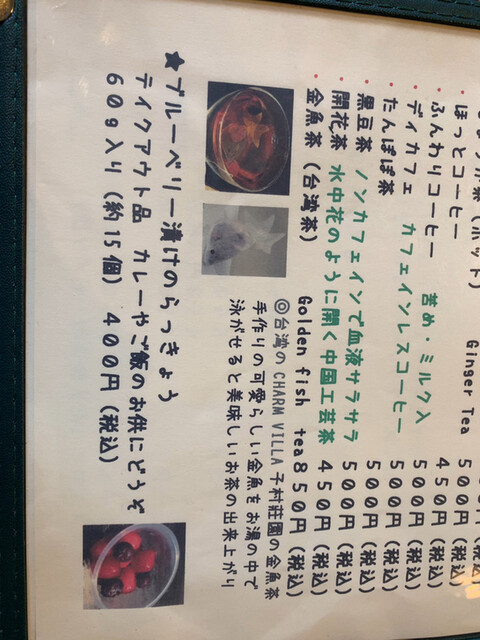 Ginger Tea 500円(税込)
・ほっとコーヒー 450円(税込)
・ふんわりコーヒー 苦め・ミルク入 500円(税込)
・ディカフェ カフェインレスコーヒー 500円(税込)
・たんぽぽ茶 500円(税込)
・黒豆茶 ノンカフェインで血液サラサラ 500円(税込)
・開花茶 水中花のように開く中国工芸茶 450円(税込)
・金魚茶(台湾茶) Golden fish tea 850円(税込)
◎台湾の CHARM VILLA 子村莊園の金魚茶
手作りの可愛らしい金魚をお湯の中で
泳がせると美味しいお茶の出来上がり
★ブルーベリー漬けのらっきょう
テイクアウト品 カレーやご飯のお供にどうぞ
60g入り(約15個) 400円(税込)